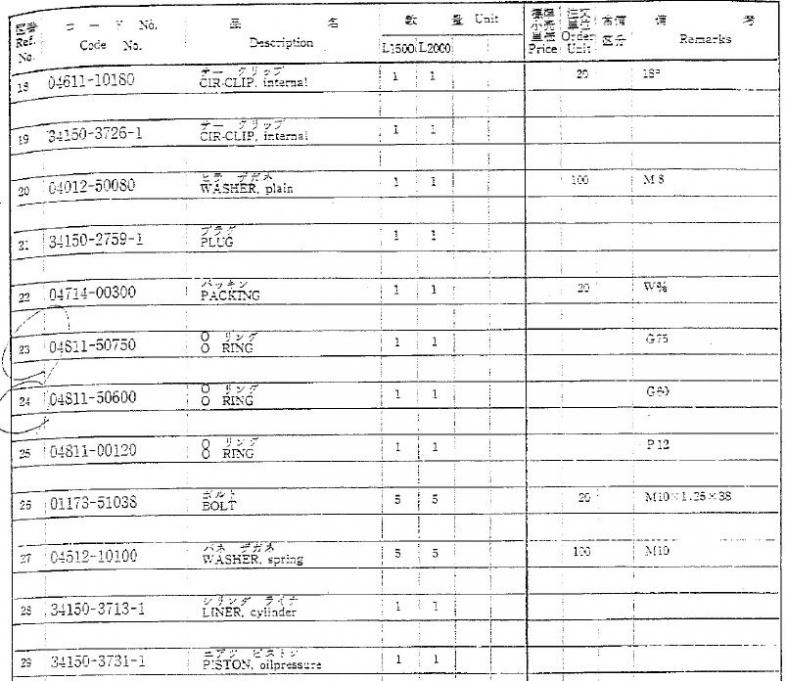 図番 コード No. 品 名 数 量 Unit 標準 注文 常備 備 考
Ref. Code No. Description 小売 単位 区分 Remarks
No. L1500 L2000 Price Order Unit
18 04611-10180 CIR-CLIP, internal 1 1 20
19 34150-3726-1 CIR-CLIP, internal 1 1
20 04012-50080 WASHER, plain 1 1 100 M 8
21 34150-2759-1 プラグ PLUG 1 1
22 04714-00300 パッキン PACKING 1 1 20
23 04811-50750 O リング O RING 1 1 G75
24 04811-50600 O リング O RING 1 1 G60
25 04811-00120 O リング O RING 1 1 P12
26 01173-51038 ボルト BOLT 5 5 20 M10×1.25×38
27 04512-10100 バネ ザガネ WASHER, spring 5 5 100 M10
28 34150-3713-1 シリンダ ライナ LINER, cylinder 1 1
29 34150-3731-1 PISTON, oilpressure 1 1